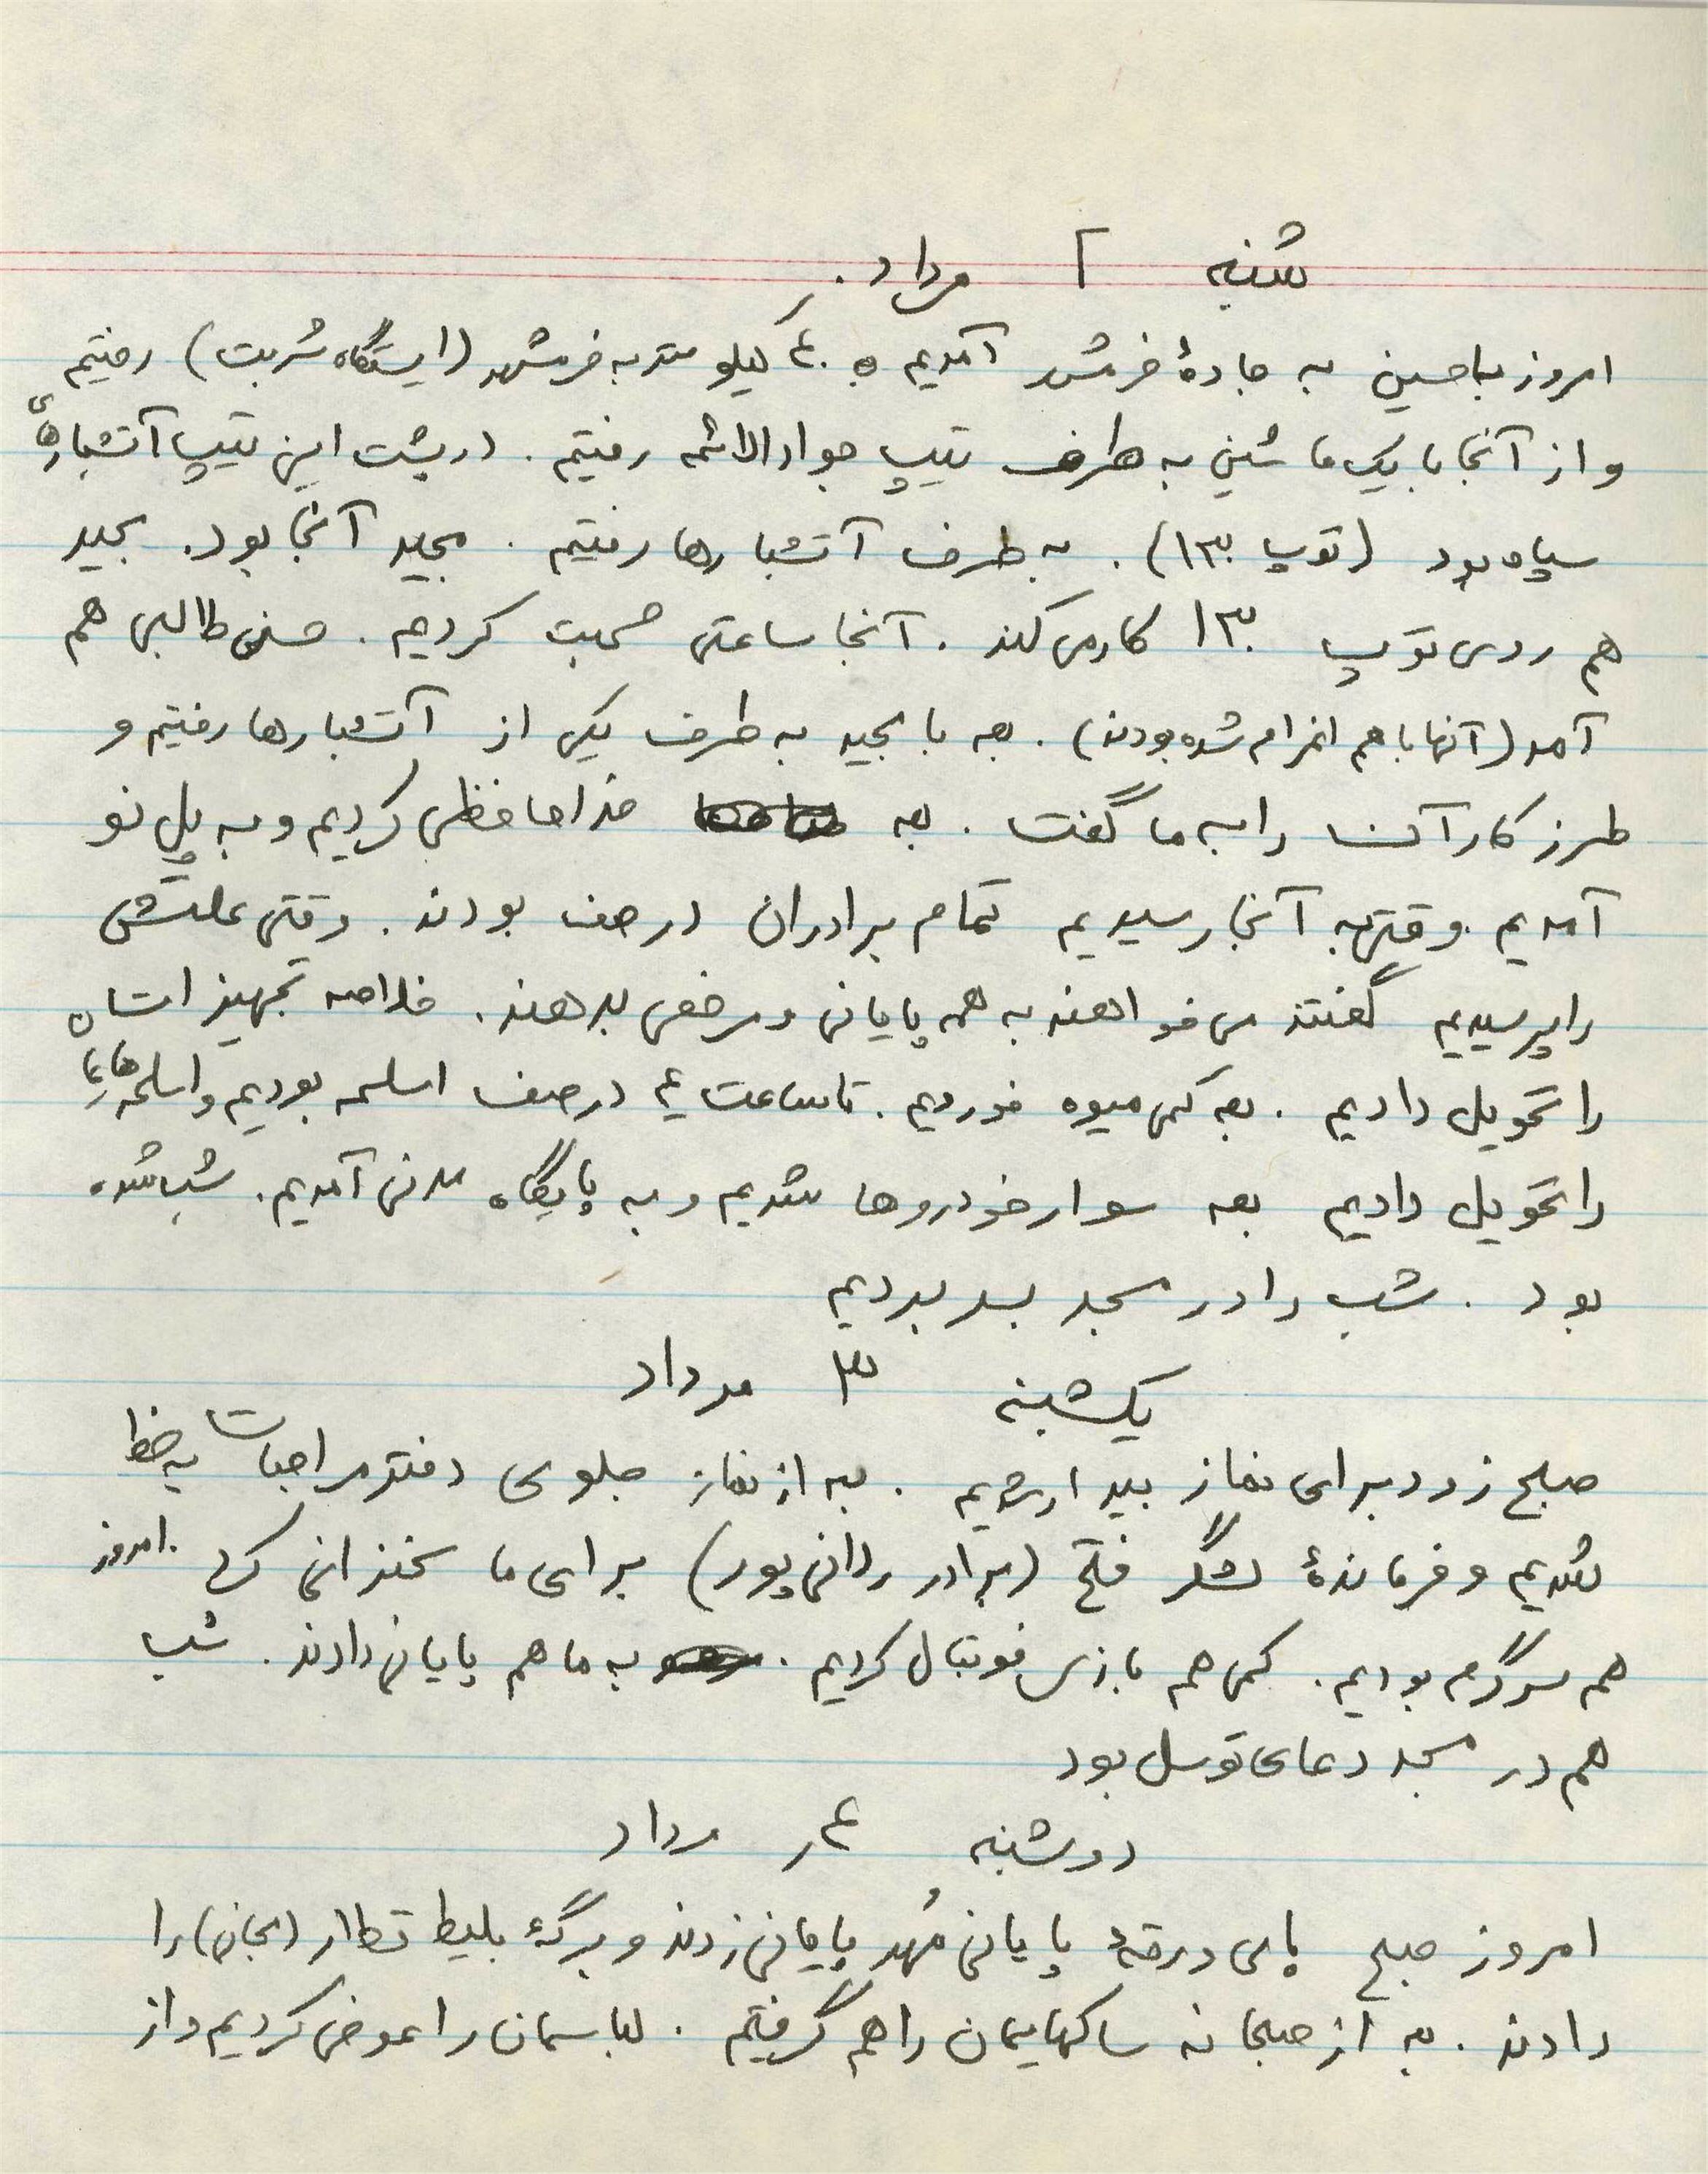 شنبه ۲ مرداد.
امروز با حسین به جادهٔ خرمشهر آمدیم و ۴۰ کیلومتر به خرمشهر (ایستگاه شربت) رفتیم
و از آنجا با یک ماشین به طرف تیپ جوادالائمه رفتیم. در پشت این تیپ آتشبارهای
سپاه بود (توپ ۱۳۰). به طرف آتشبارها رفتیم. مجید آنجا بود. مجید
هم روی توپ ۱۳۰ کار می کند. آنجا ساعتی صحبت کردیم. حسن طالبی هم
آمد (آنها با هم اعزام شده بودند). بعد با مجید به طرف یکی از آتشبارها رفتیم و
طرز کار آن را به ما گفت. بعد خداحافظی کردیم و به پل نو
آمدیم. وقتی به آنجا رسیدیم تمام برادران در صف بودند. وقتی علتش
را پرسیدیم گفتند می خواهند به همه پایانی و مرخصی بدهند. خلاصه تجهیزاتمان
را تحویل دادیم. بعد کمی میوه خوردیم. تا ساعت ۴ در صف اسلحه بودیم و اسلحه هایمان
را تحویل دادیم بعد سوار خودروها شدیم و به پایگاه مدنی آمدیم. شب شده
بود. شب را در مسجد بسر بردیم
یکشنبه ۳ مرداد
صبح زود برای نماز بیدار شدیم. بعد از نماز جلوی دفتر مراجعات به خط
شدیم و فرماندهٔ لشگر فتح (برادر ردانی پور) برای ما سخنرانی کرد. امروز
هم سرگرم بودیم. کمی هم بازی فوتبال کردیم. به ما هم پایانی دادند. شب
هم در مسجد دعای توسل بود
دوشنبه ۴ مرداد
امروز صبح پای ورقهٔ پایانی مُهر پایانی زدند و برگهٔ بلیط قطار (مجانی) را
دادند. بعد از صبحانه ساکهایمان را هم گرفتیم. لباسمان را عوض کردیم و از